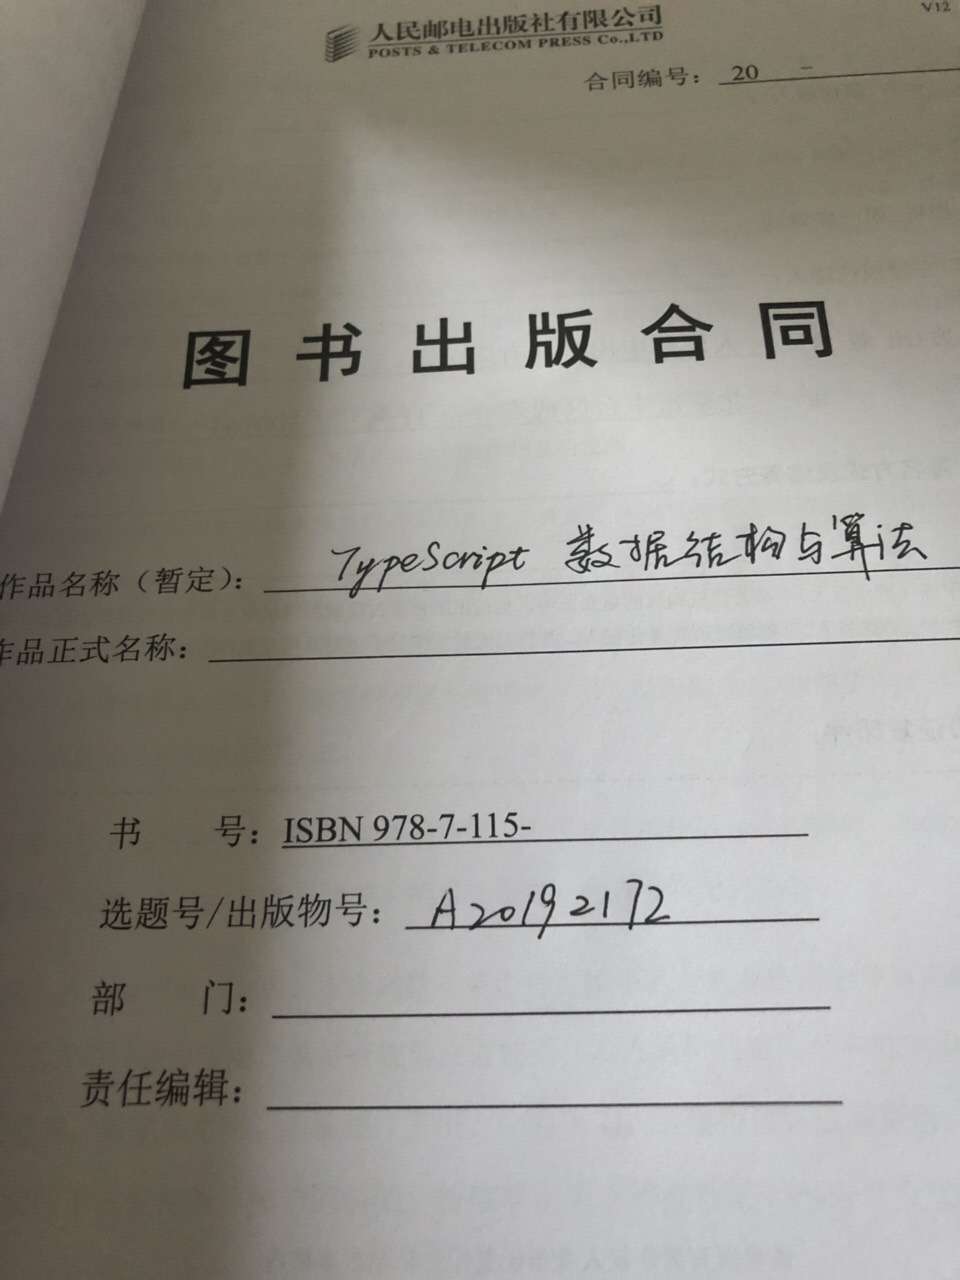 人民邮电出版社有限公司
POSTS & TELECOM PRESS Co.,LTD
V12
合同编号： 20 -
图书出版合同
作品名称（暂定）： TypeScript 数据结构与算法
作品正式名称：
书 号：ISBN 978-7-115-
选题号/出版物号： A20192172
部 门：
责任编辑：